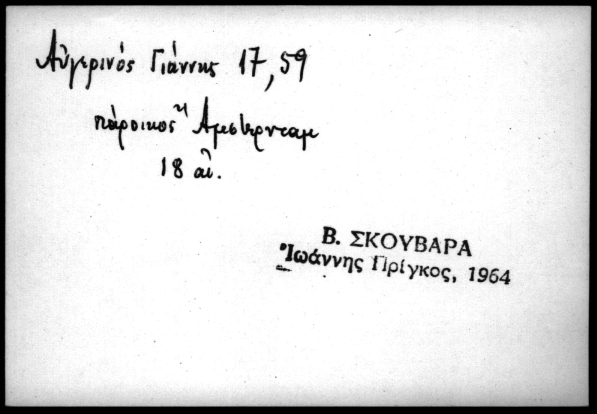 Αὐγερινός Γιάννης 17, 59
πάροικος Ἄμστερνταμ
18 αἰ.
Β. ΣΚΟΥΒΑΡΑ
Ἰωάννης Πρίγκος, 1964